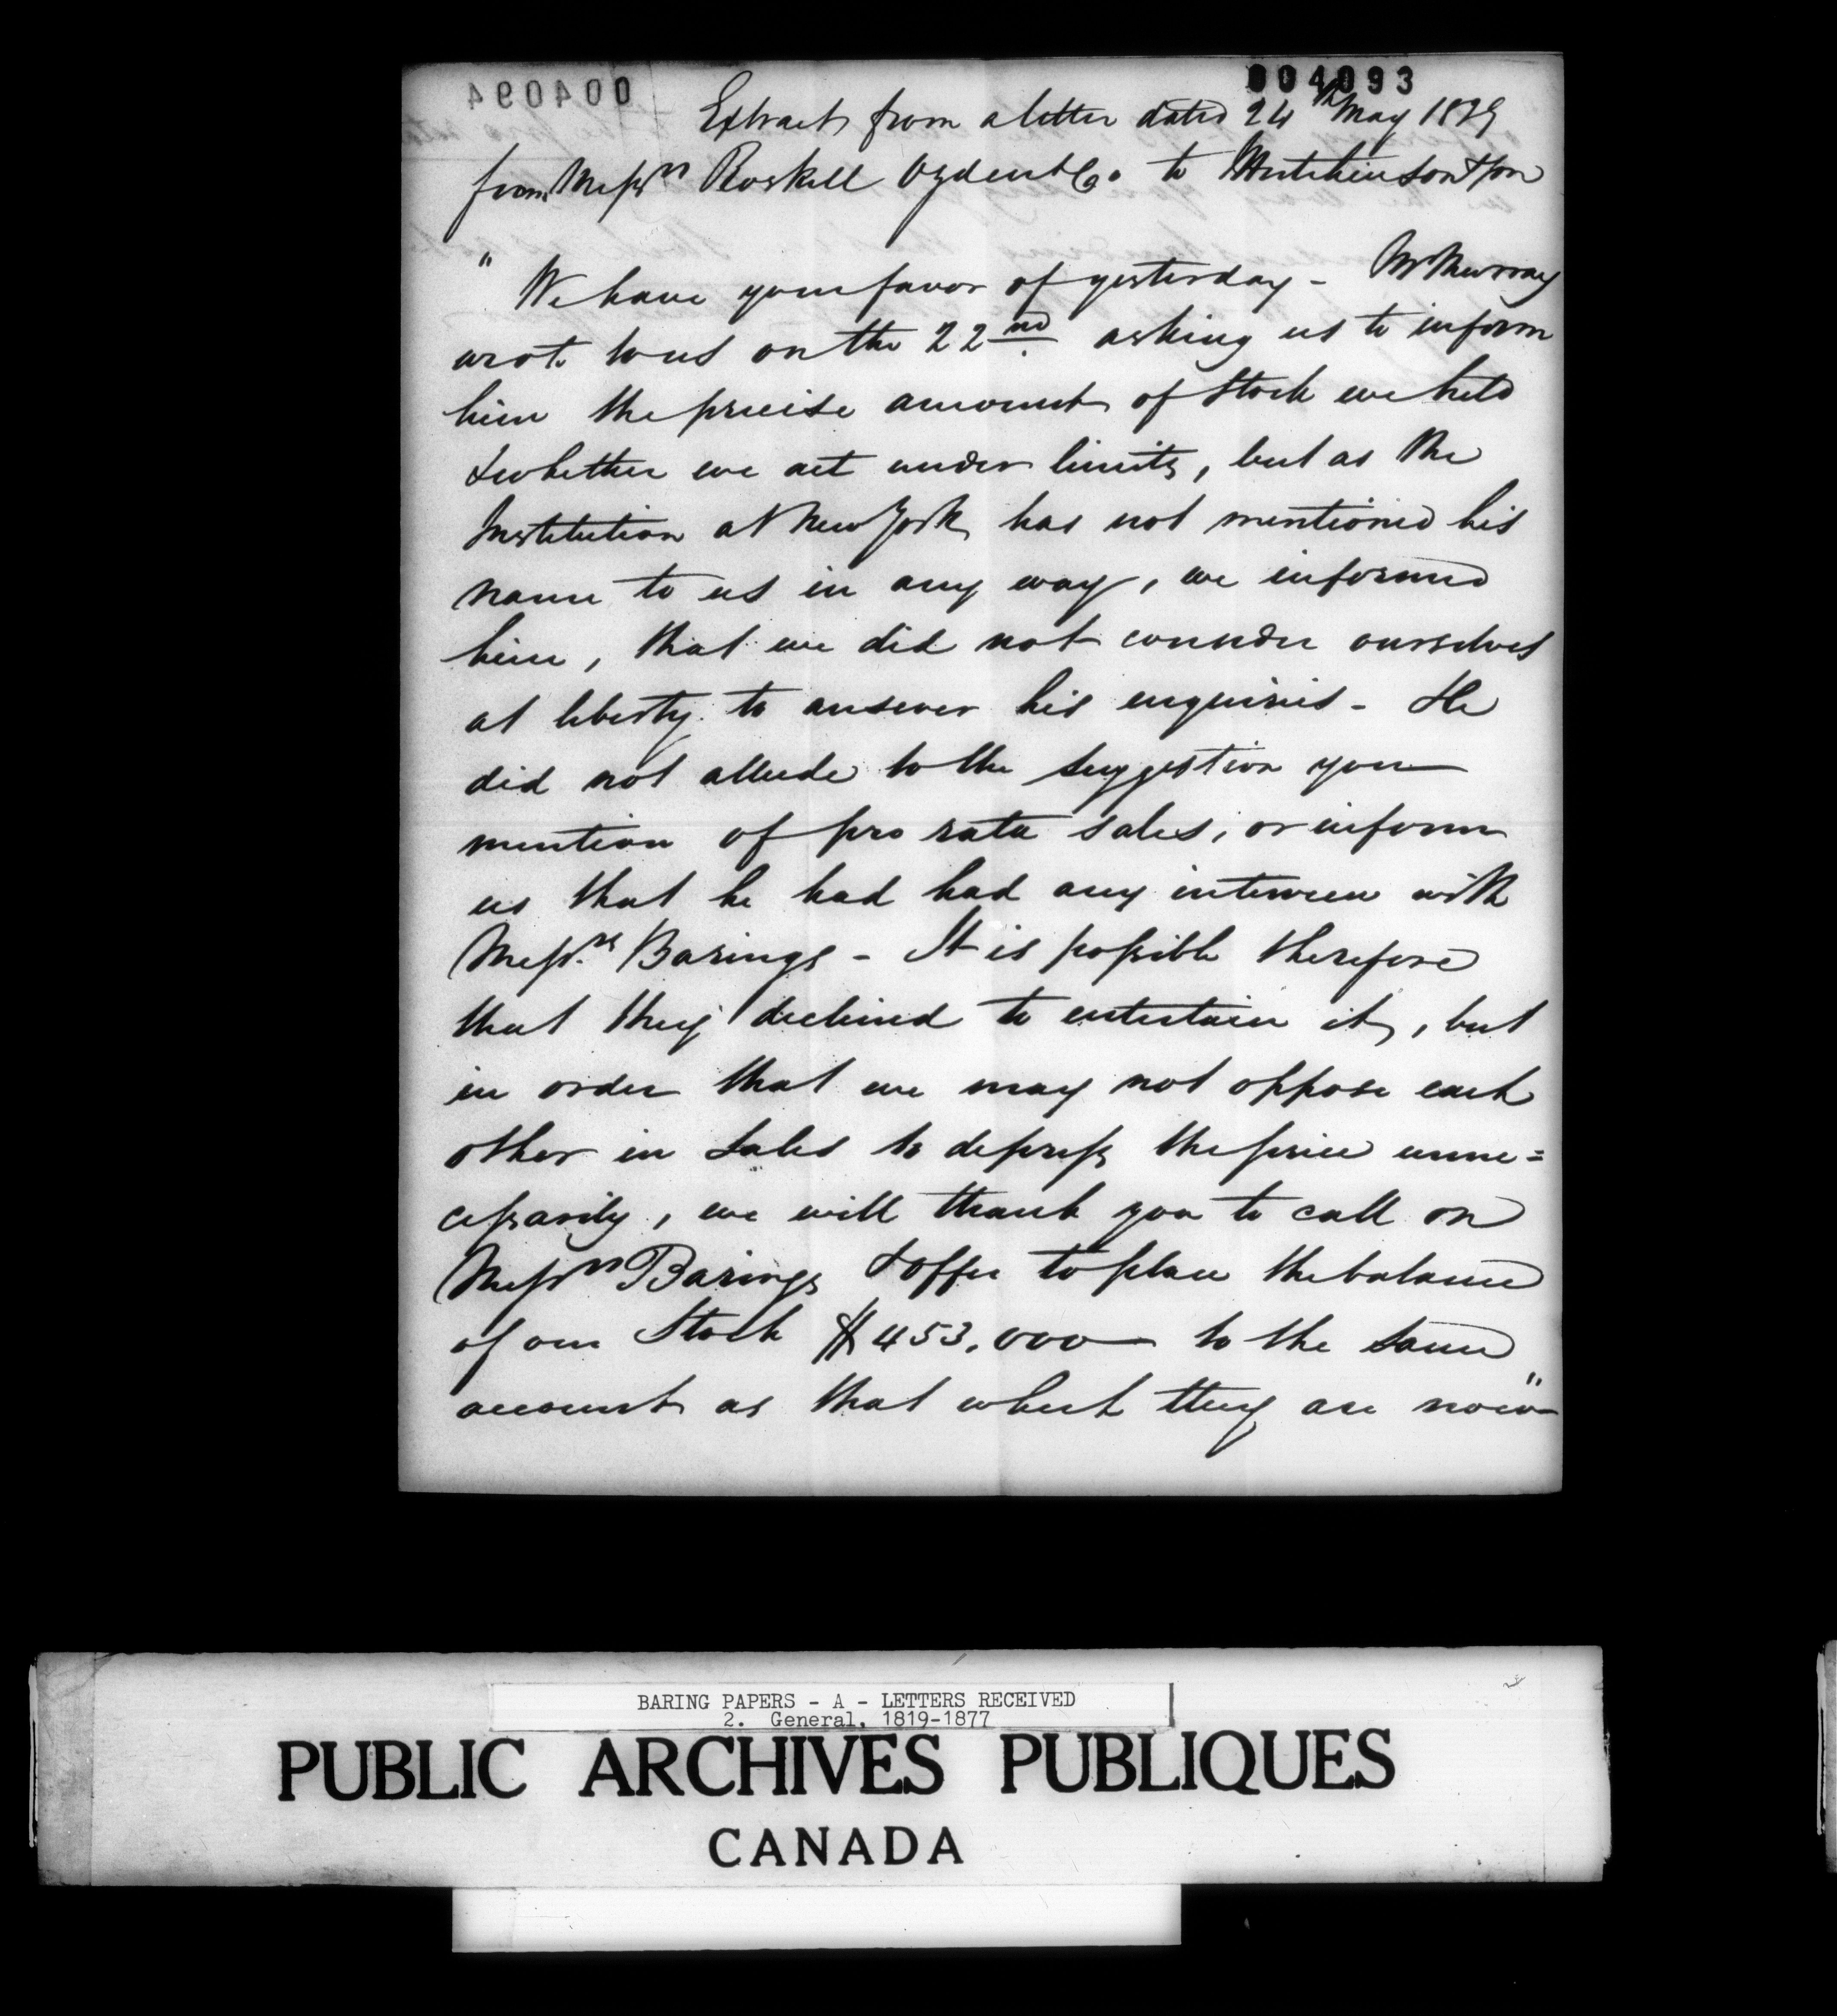 004094
004093
Extract from a letter dated 24th May 1839
from Messrs Roskell Ogden & Co. to Hutchinson & Son
" We have your favor of yesterday - Mr Murray
wrote to us on the 22nd. asking us to inform
him the precise amount of Stock we held
& whether we act under limits, but as the
Institution at New York has not mentioned his
name to us in any way, we informed
him, that we did not consider ourselves
at liberty to answer his enquiries - He
did not allude to the suggestion you
mention of pro rata sales, or inform
us that he had had any interview with
Messrs Barings - It is possible therefore
that they declined to entertain it, but
in order that we may not oppose each
other in sales to depress the price unne=
cessarily, we will thank you to call on
Messrs Barings & offer to place the balance
of our Stock $453,000 to the same
account as that which they are now"
BARING PAPERS - A - LETTERS RECEIVED
2. General, 1819-1877
PUBLIC ARCHIVES PUBLIQUES
CANADA